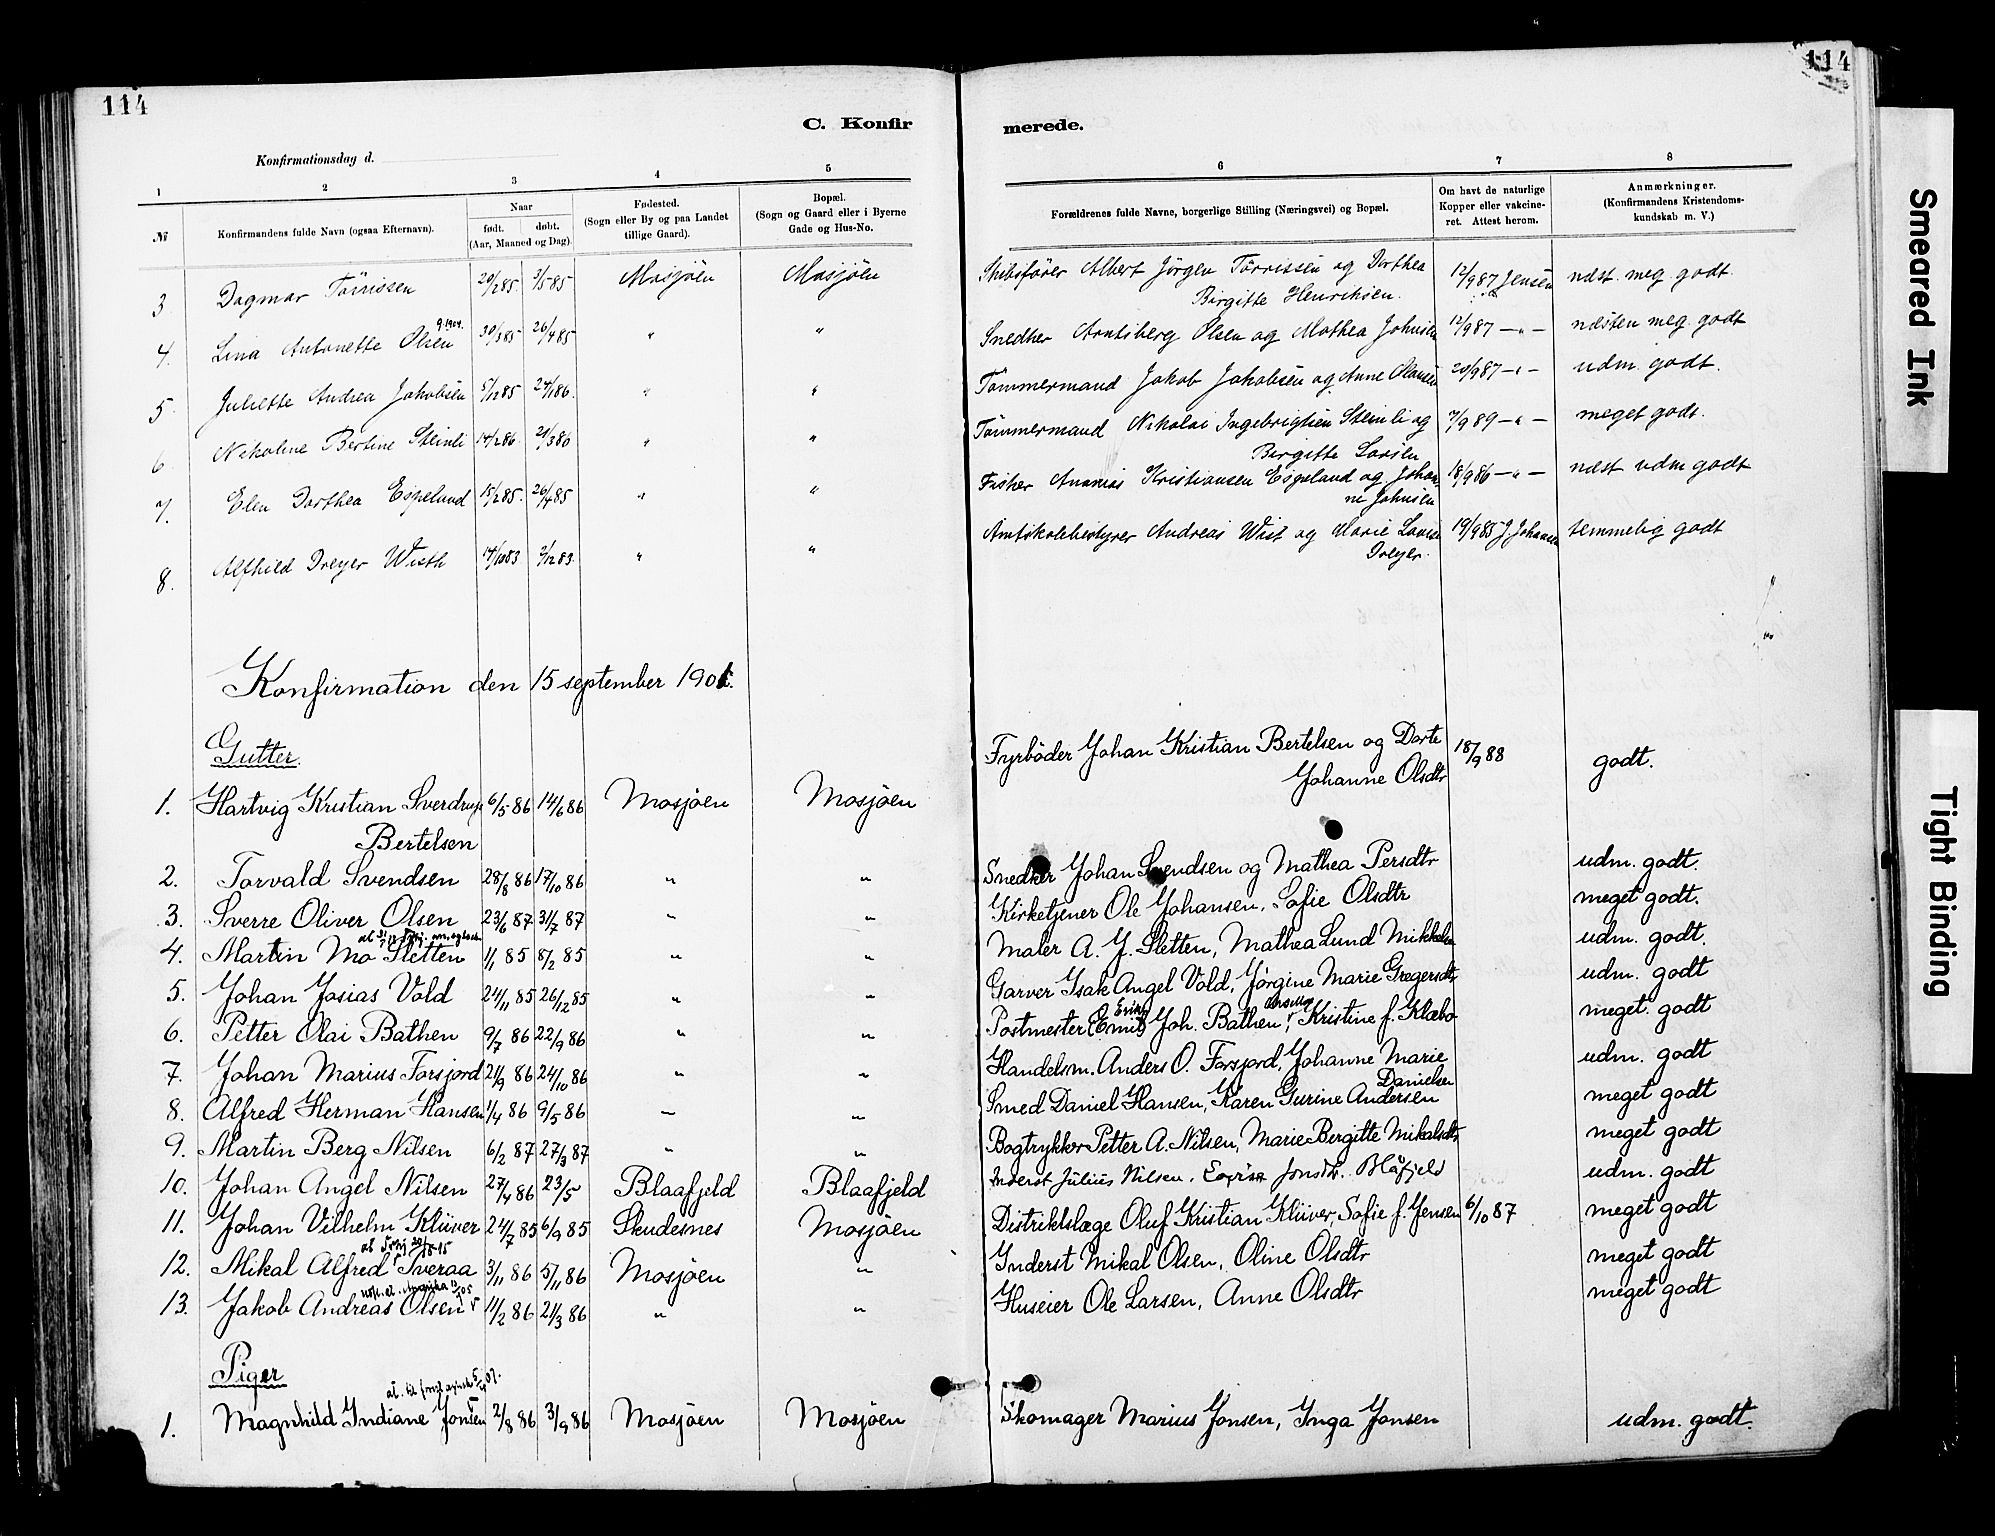 114
114
C. Konfirmerede.
Konfirmationsdag d.
1 2 3 4 5 6 7 8
№ Konfirmandens fulde Navn (ogsaa Efternavn). Naar født. døbt. (Aar, Maaned og Dag). Fødested. (Sogn eller By og paa Landet tillige Gaard). Bopæl. (Sogn og Gaard eller i Byerne Gade og Hus-No. Forældrenes fulde Navne, borgerlige Stilling (Næringsvei) og Bopæl. Om havt de naturlige Kopper eller vakcineret. Attest herom. Anmærkninger. (Konfirmandens Kristendomskundskab m. V.)
3. Dagmar Törrissen 20/2 85. 3/5 85 Mosjöen Mosjöen Skibsförer Albert Jörgen Törrissen og Dorthea 12/9 87 Jensen næst. meg. godt.
Birgitte Henriksen.
4. Lina Antonette Olsen 30/3 85 26/4 85 " " Snedker Arntsberg Olsen og Mathea Johnsen 12/9 87 — " — næsten meg. godt
5. Juliette Andrea Jakobsen 5/12 85 24/1 86. " " Tömmermand Jakob Jakobsen og Anne Olausen 20/9 87 — " — udm. godt.
6. Nikoline Bertine Steinli 14/2 86. 21/3 86 " " Tömmermand Nikolai Ingebrigtsen Steinli og 7/9 89 — " — meget godt.
Birgitte Larsen
7. Elen Dorthea Espeland 15/2 85. 26/4 85 " " Fisker Ananias Kristiansen Espeland og Johanne Johnsen 18/9 86 — " — næst udm godt
8. Alfhild Dreyer Wisth 14/10 83 2/12 83. " " Amtskolebestyrer Andreas Wist og Marie Lovise Dreyer. 19/9 85 J Johansen temmelig godt
Konfirmation den 15 september 1901.
Gutter.
1. Hartvig Kristian Sverdrup Bertelsen 6/5 86 14/6 86 Mosjöen Mosjöen Fyrböder Johan Kristian Bertelsen og Dorte Johanne Olsdtr 18/9 88 godt.
2. Torvald Svendsen 28/8 86 17/10 86 " " Snedker Johan Svendsen og Mathea Persdtr udm. godt.
3. Sverre Oliver Olsen 23/6 87 31/7 87 " " Kirketjener Ole Johansen, Sofie Olsdtr meget godt.
4. Martin Mo Sletten 1/1 85 8/2 85 " " Maler A. J. Sletten, Mathea Lund Mikkelsen udm. godt.
5. Johan Josias Vold 24/11 85 26/12 85 " " Garver Isak Angel Vold, Jörgine Marie Gregersdtr udm. godt
6. Petter Olai Bathen 9/7 86 22/9 86 " " Postmester (Emil) Joh. Bathen, Kristine f. Klæbo meget. godt
7. Johan Marius Forsjord 21/9 86 24/10 86 " " Handelsm. Anders O. Forsjord, Johanne Marie Danielsen udm. godt
8. Alfred Herman Hansen 1/4 86 9/5 86 " " Smed Daniel Hansen, Karen Gurine Andersen meget godt
9. Martin Berg Nilsen 6/2 87 27/3 87 " " Bogtrykker Petter A. Nilsen, Marie Bergitte Mikalsdtr meget godt
10. Johan Angel Nilsen 27/4 86 23/5 Blaafjeld Blaafjeld Inderst Julius Nilsen, Jonsdtr. Blåfjeld udm. godt
11. Johan Vilhelm Klüver 24/7 85 6/9 85 Skudesnes Mosjöen Distriktslæge Oluf Kristian Klüver, Sofie f. Jensen 6/10 87 meget godt
12. Mikal Alfred Sveraa 3/11 86 5/11 86 Mosjöen " Inderst Mikal Olsen, Oline Olsdtr meget godt
13. Jakob Andreas Olsen 11/2 86 21/3 86 " " Huseier Ole Larsen, Anne Olsdtr meget godt
Piger
1. Magnhild Indiane Jonsen 2/8 86 3/9 86 Mosjöen Mosjöen Skomager Marius Jonsen, Inga Jonsen udm. godt.
Smeared Ink
Tight Binding